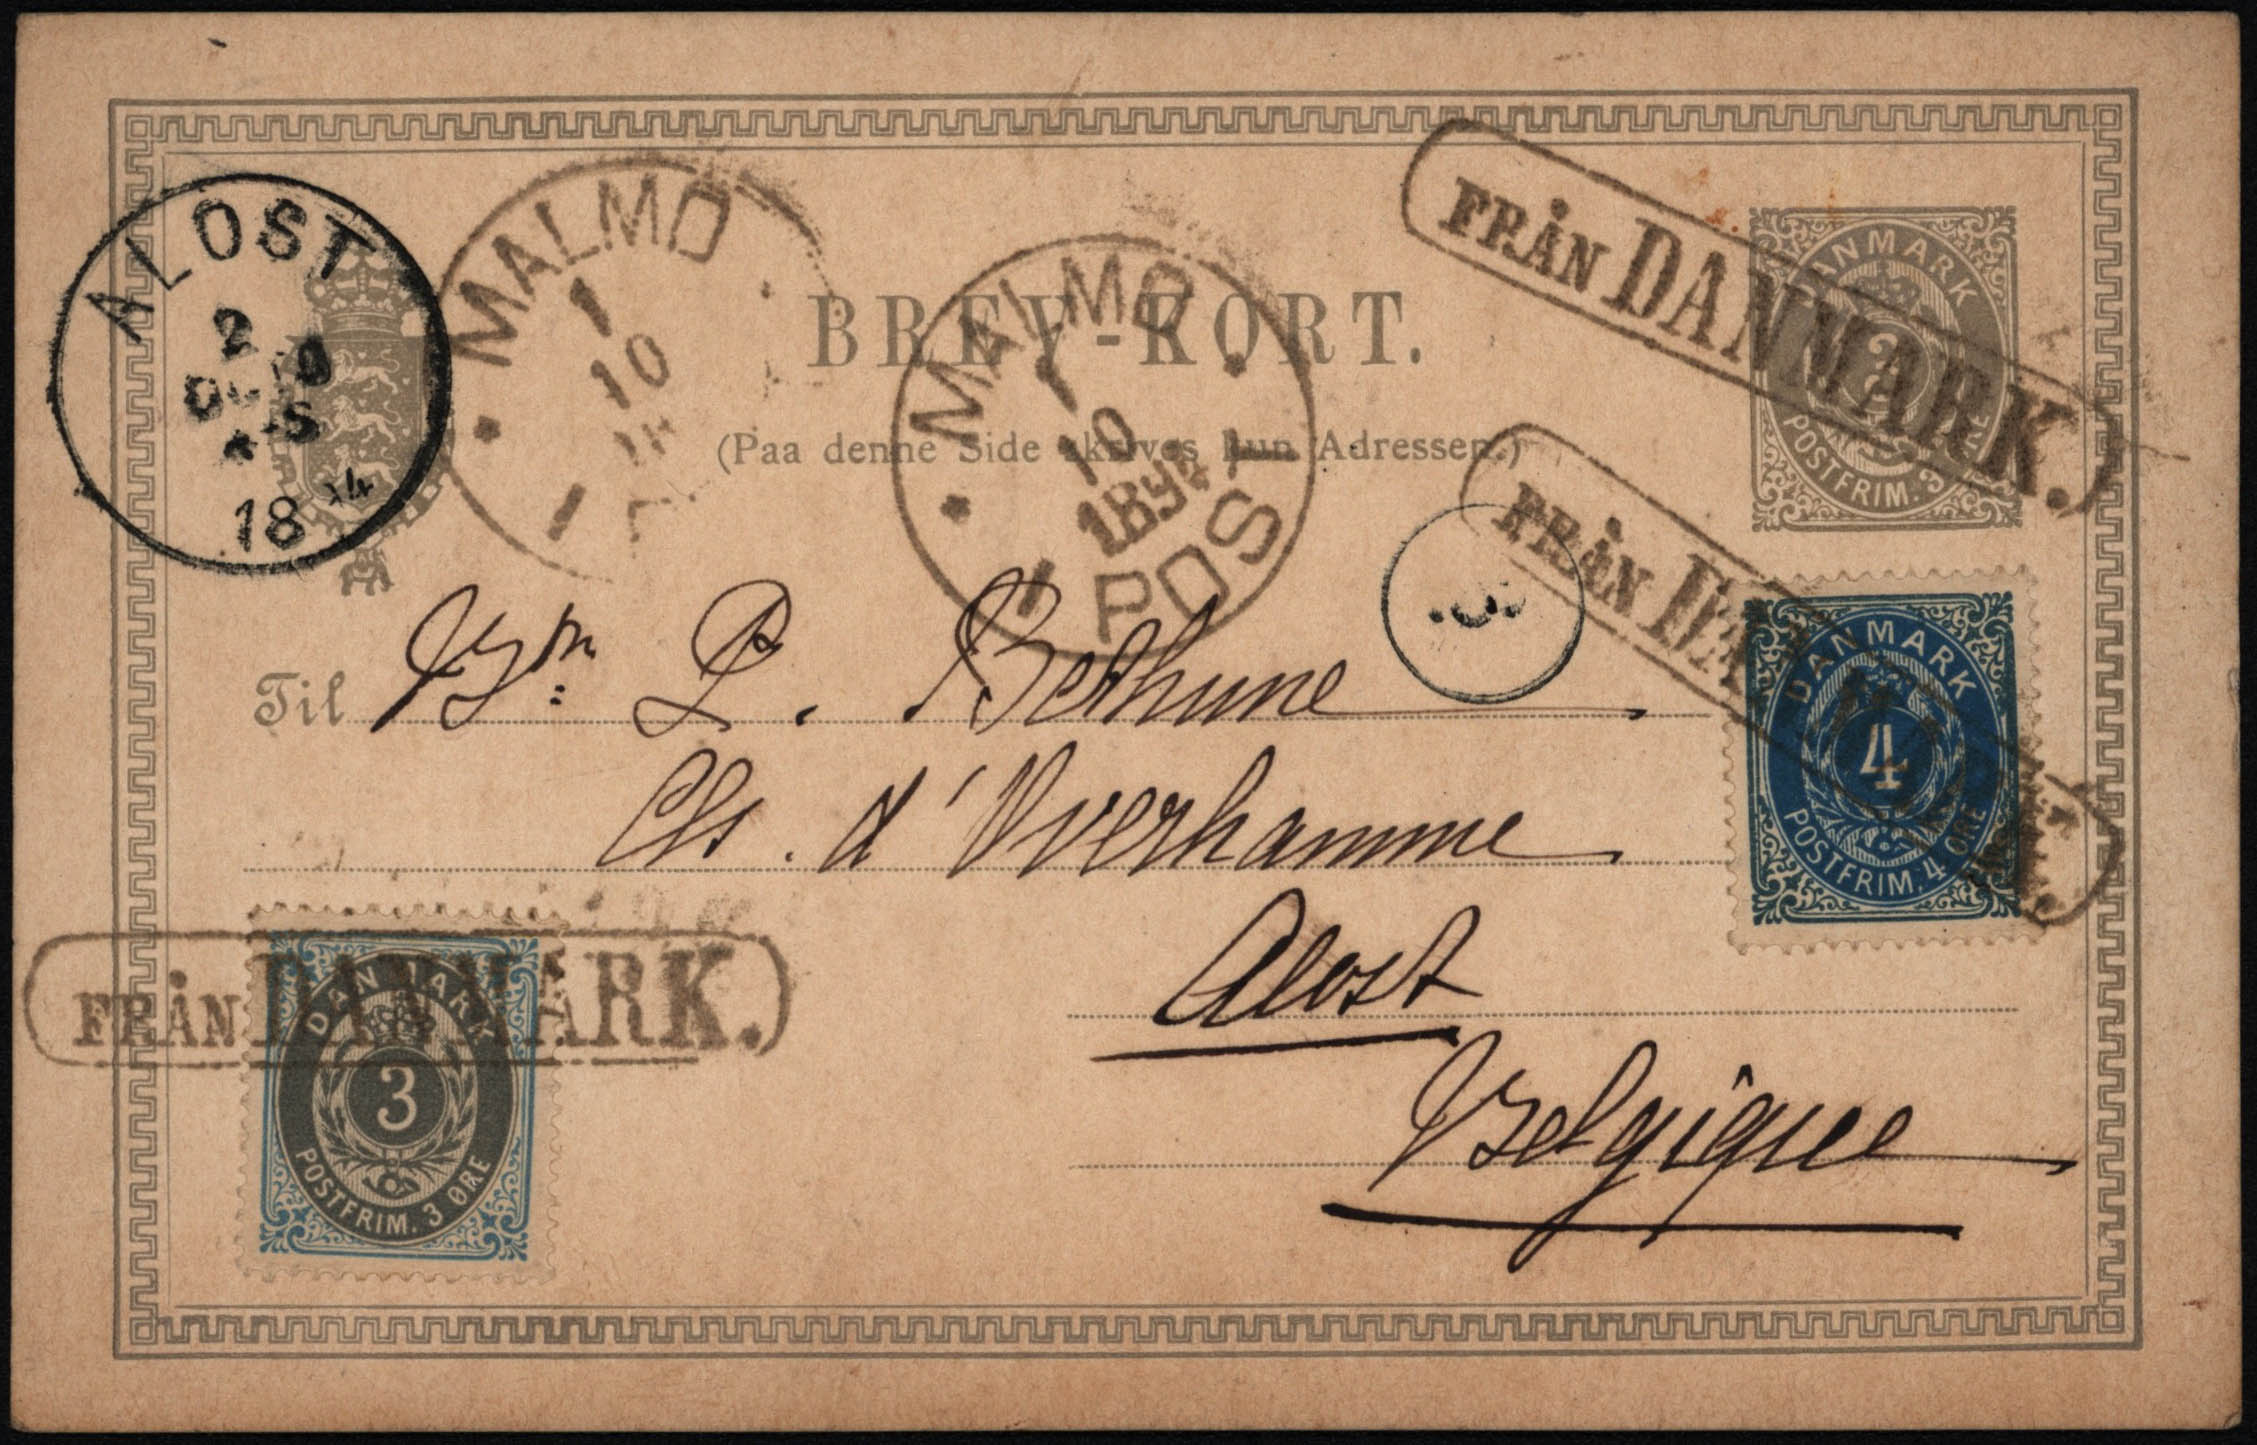 ALOST
2
18
MALMÖ
1
10
MALMÖ
1
10
189
1 POST
BREV-KORT.
(Paa denne Side skrives kun Adressen.)
FRÅN DANMARK.
DANMARK
3
POSTFRIM. 3 ØRE
FRÅN DANMARK.
DANMARK
4
POSTFRIM. 4 ØRE
Til Bⁿ: L. Bethune
Chs. d'Overhamme
Alost
Belgique
FRÅN DANMARK.
DANMARK
3
POSTFRIM. 3 ØRE